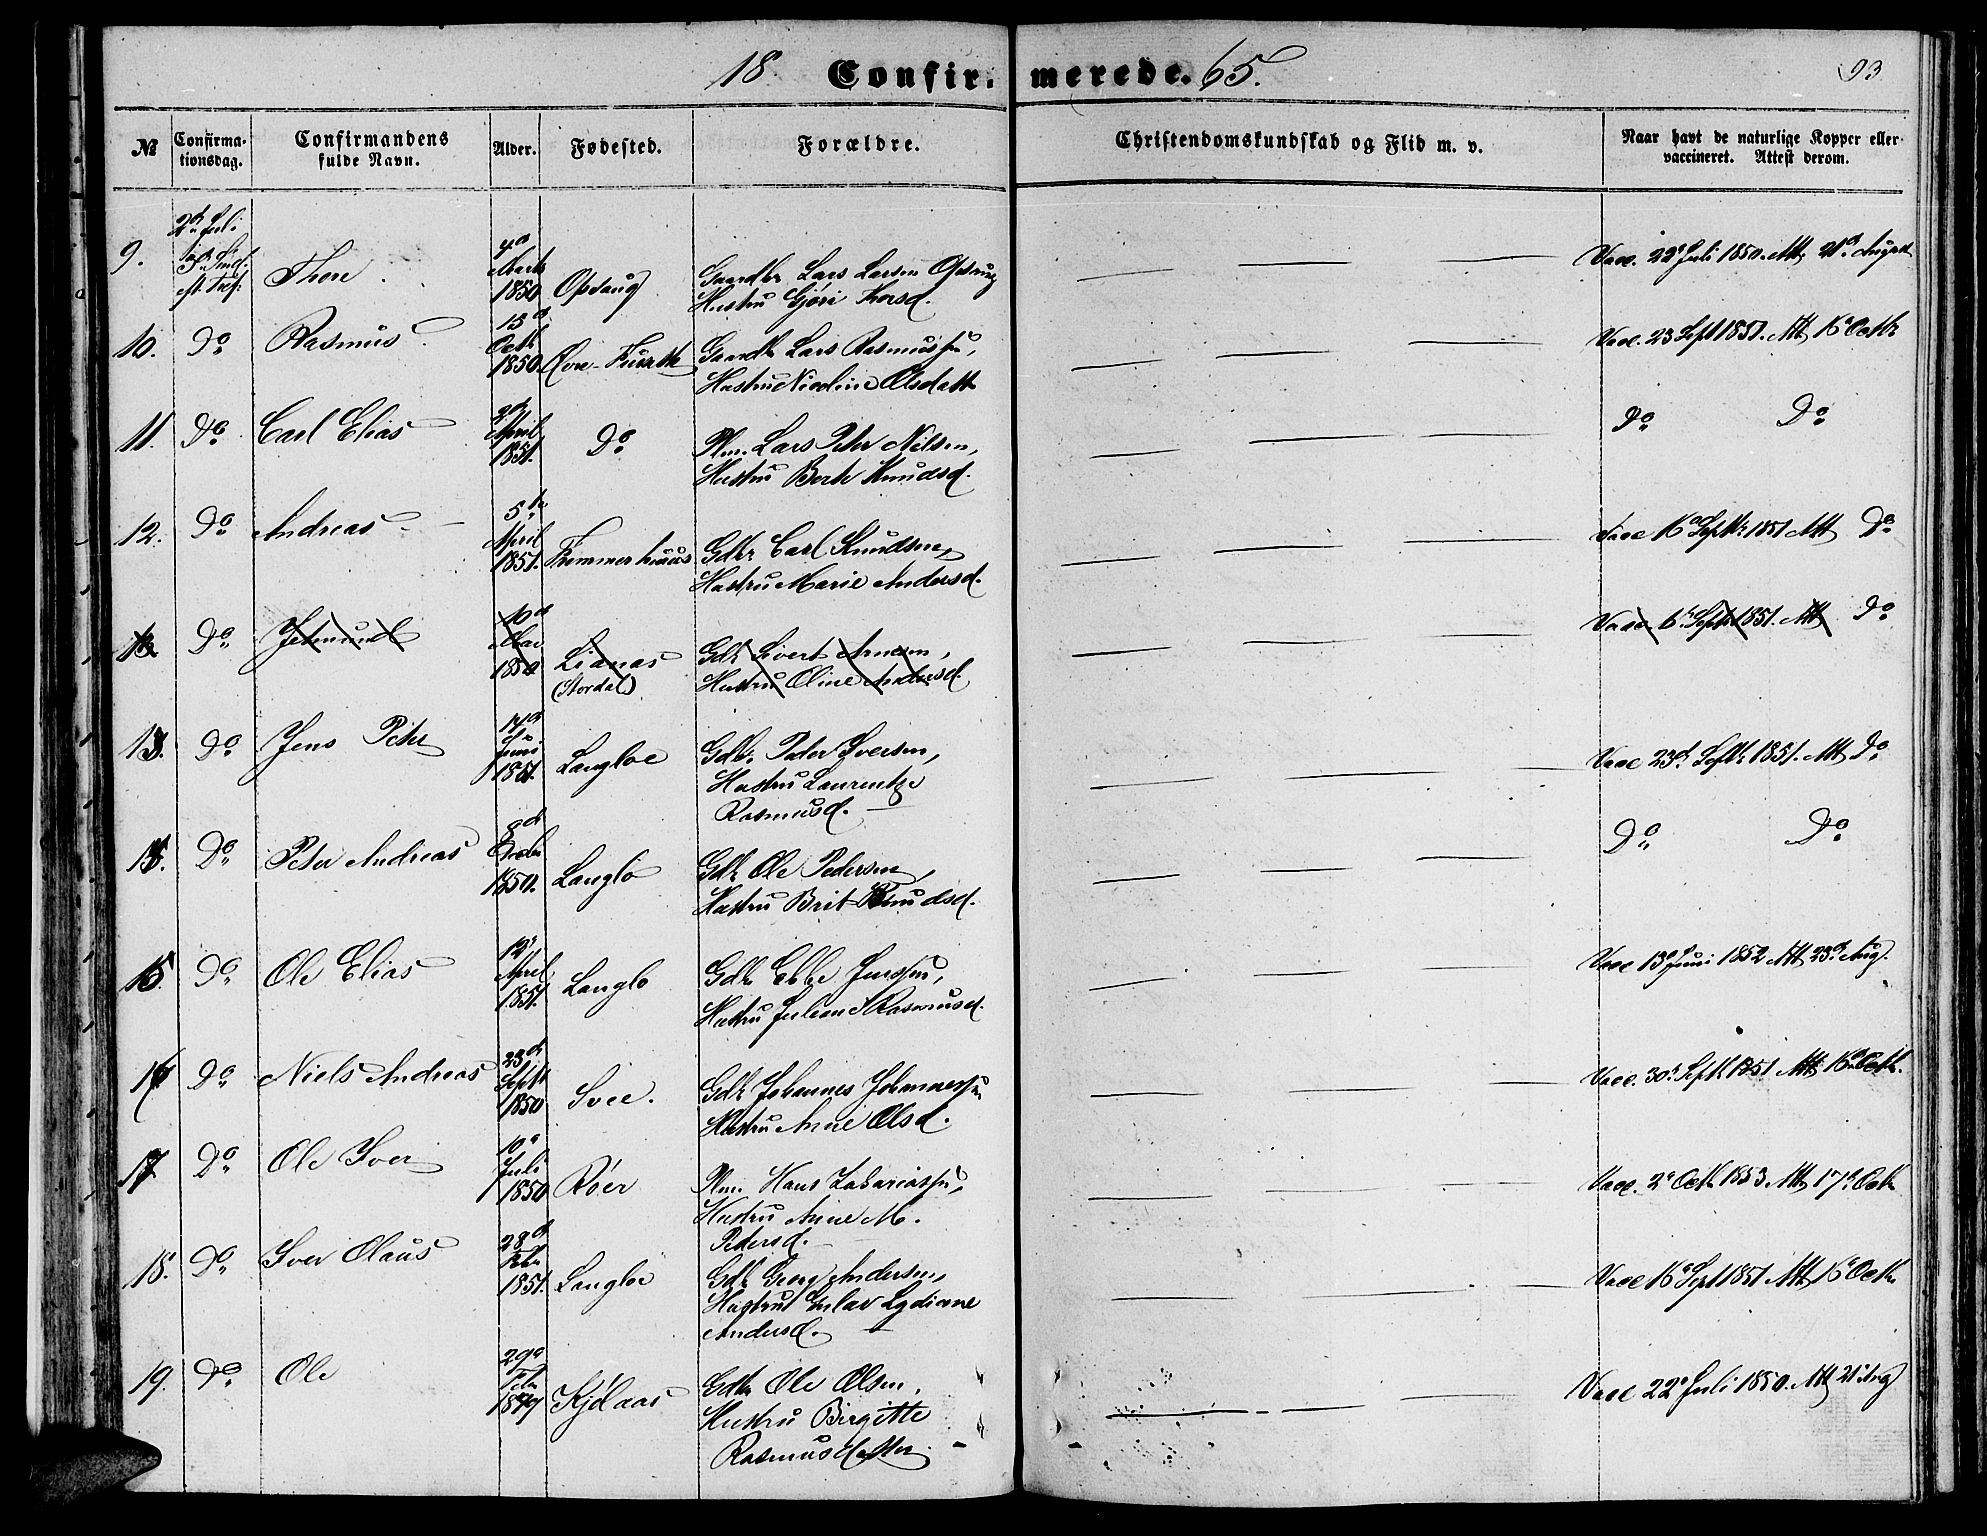 18 Confir- merede. 65.
93
№ Confirma-tionsdag. Confirmandens fulde Navn. Alder. Fødested. Forældre. Christendomskundskab og Flid m. v. Naar havt de naturlige Kopper eller vaccineret. Attest derom.
9. 2d Juli Thore. 4d Marts 1850 Gaardbr Lars Larsen
Hustru Gjøri Thorsd. Vacc. 22d Juli 1850. Att. 21d August
10. Do Rasmus 13d Octb 1850. Øvre- Gaardb Lars Rasmussen,
Hustru Nicoline Olsdatt Vacc. 23 Sept 1851. Att 16d Octbr
11. Do Carl Elias 2d April 1851. Do Plm. Lars Peter Nilsen,
Hustru Berte Knudsd. Do Do
12. Do Andreas 5te April 1851. Gdbr Carl Knudsen,
Hustru Marie Andersd. Vacc 16d Septbr 1851 Att Do
13 Do Jetmund 10d Lianes (Stordal) Gdb Sivert Arnesen,
Hustru Oline Andersd. Vacc. 16 Septbr 1851. Att Do
13. Do Jens Peter 14d Juni 1851. Langloe Gdb. Peder Iversen,
Hustru Laurentze
Rasmusd. Vacc 23d Septbr 1851. Att Do
Do Peter Andreas 8d 1850. Langlo Gdb Ole Pedersen,
Hustru Brit Knudsd. Do Do
15. Do Ole Elias 12d April 1851. Langlo Gdb Ebbe Jenssen,
Hustru Juliane Rasmusd. Vacc 13d Juni 1852 Att 23d Aug.
16 Do Niels Andreas 23d Septbr 1850 Svee. Gdb Johannes Johannessen
Hustru Anne Olsd. Vacc. 30d Septb 1851 Att 16d Octb.
17 Do Ole Iver 10d Juli 1850 Røer Plm. Hans Zakariassen,
Hustru Anne M.
Pedersd. Vacc. 2d Octb 1853 Att 17d Octb
18. Do Iver Olaus 28d Feb 1851. Langloe Gdb Georg Andersen,
Hustru Lydiane
Andersd. Vacc 16d Sept 1851 Att 16d Octb
19. Do Ole 29d Feb Kjølaas Gdbr Ole Olsen,
Hustru Birgitte
Rasmusdatter. Vacc 22d Juli 1850. Att 21 Aug